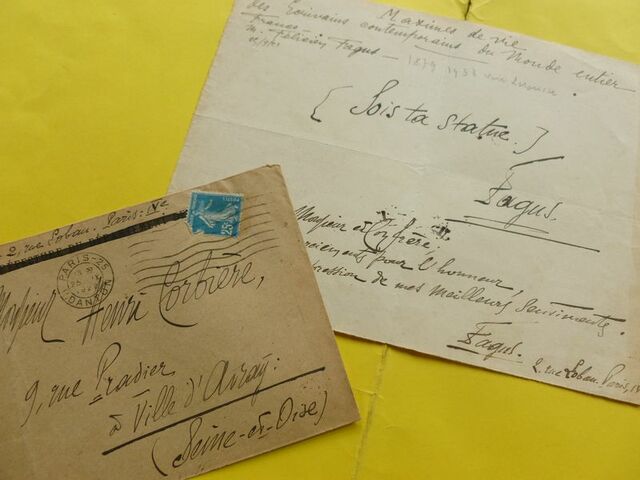 Maximes de vie
des Écrivains contemporains du Monde entier
France
M. Félicien Fagus
1879 1933
[Sois ta statue.]
Fagus.
Monsieur et Confrère:
pour l'honneur,
de mes meilleurs sentiments.
Fagus.
2 rue Lobau. Paris, IV
2, rue Lobau. Paris: IVe
25c
POSTES
PARIS-25
R. DANTON
Monsieur Henri Corbière,
9, rue Pradier
à Ville d'Avray:
(Seine-et-Oise)